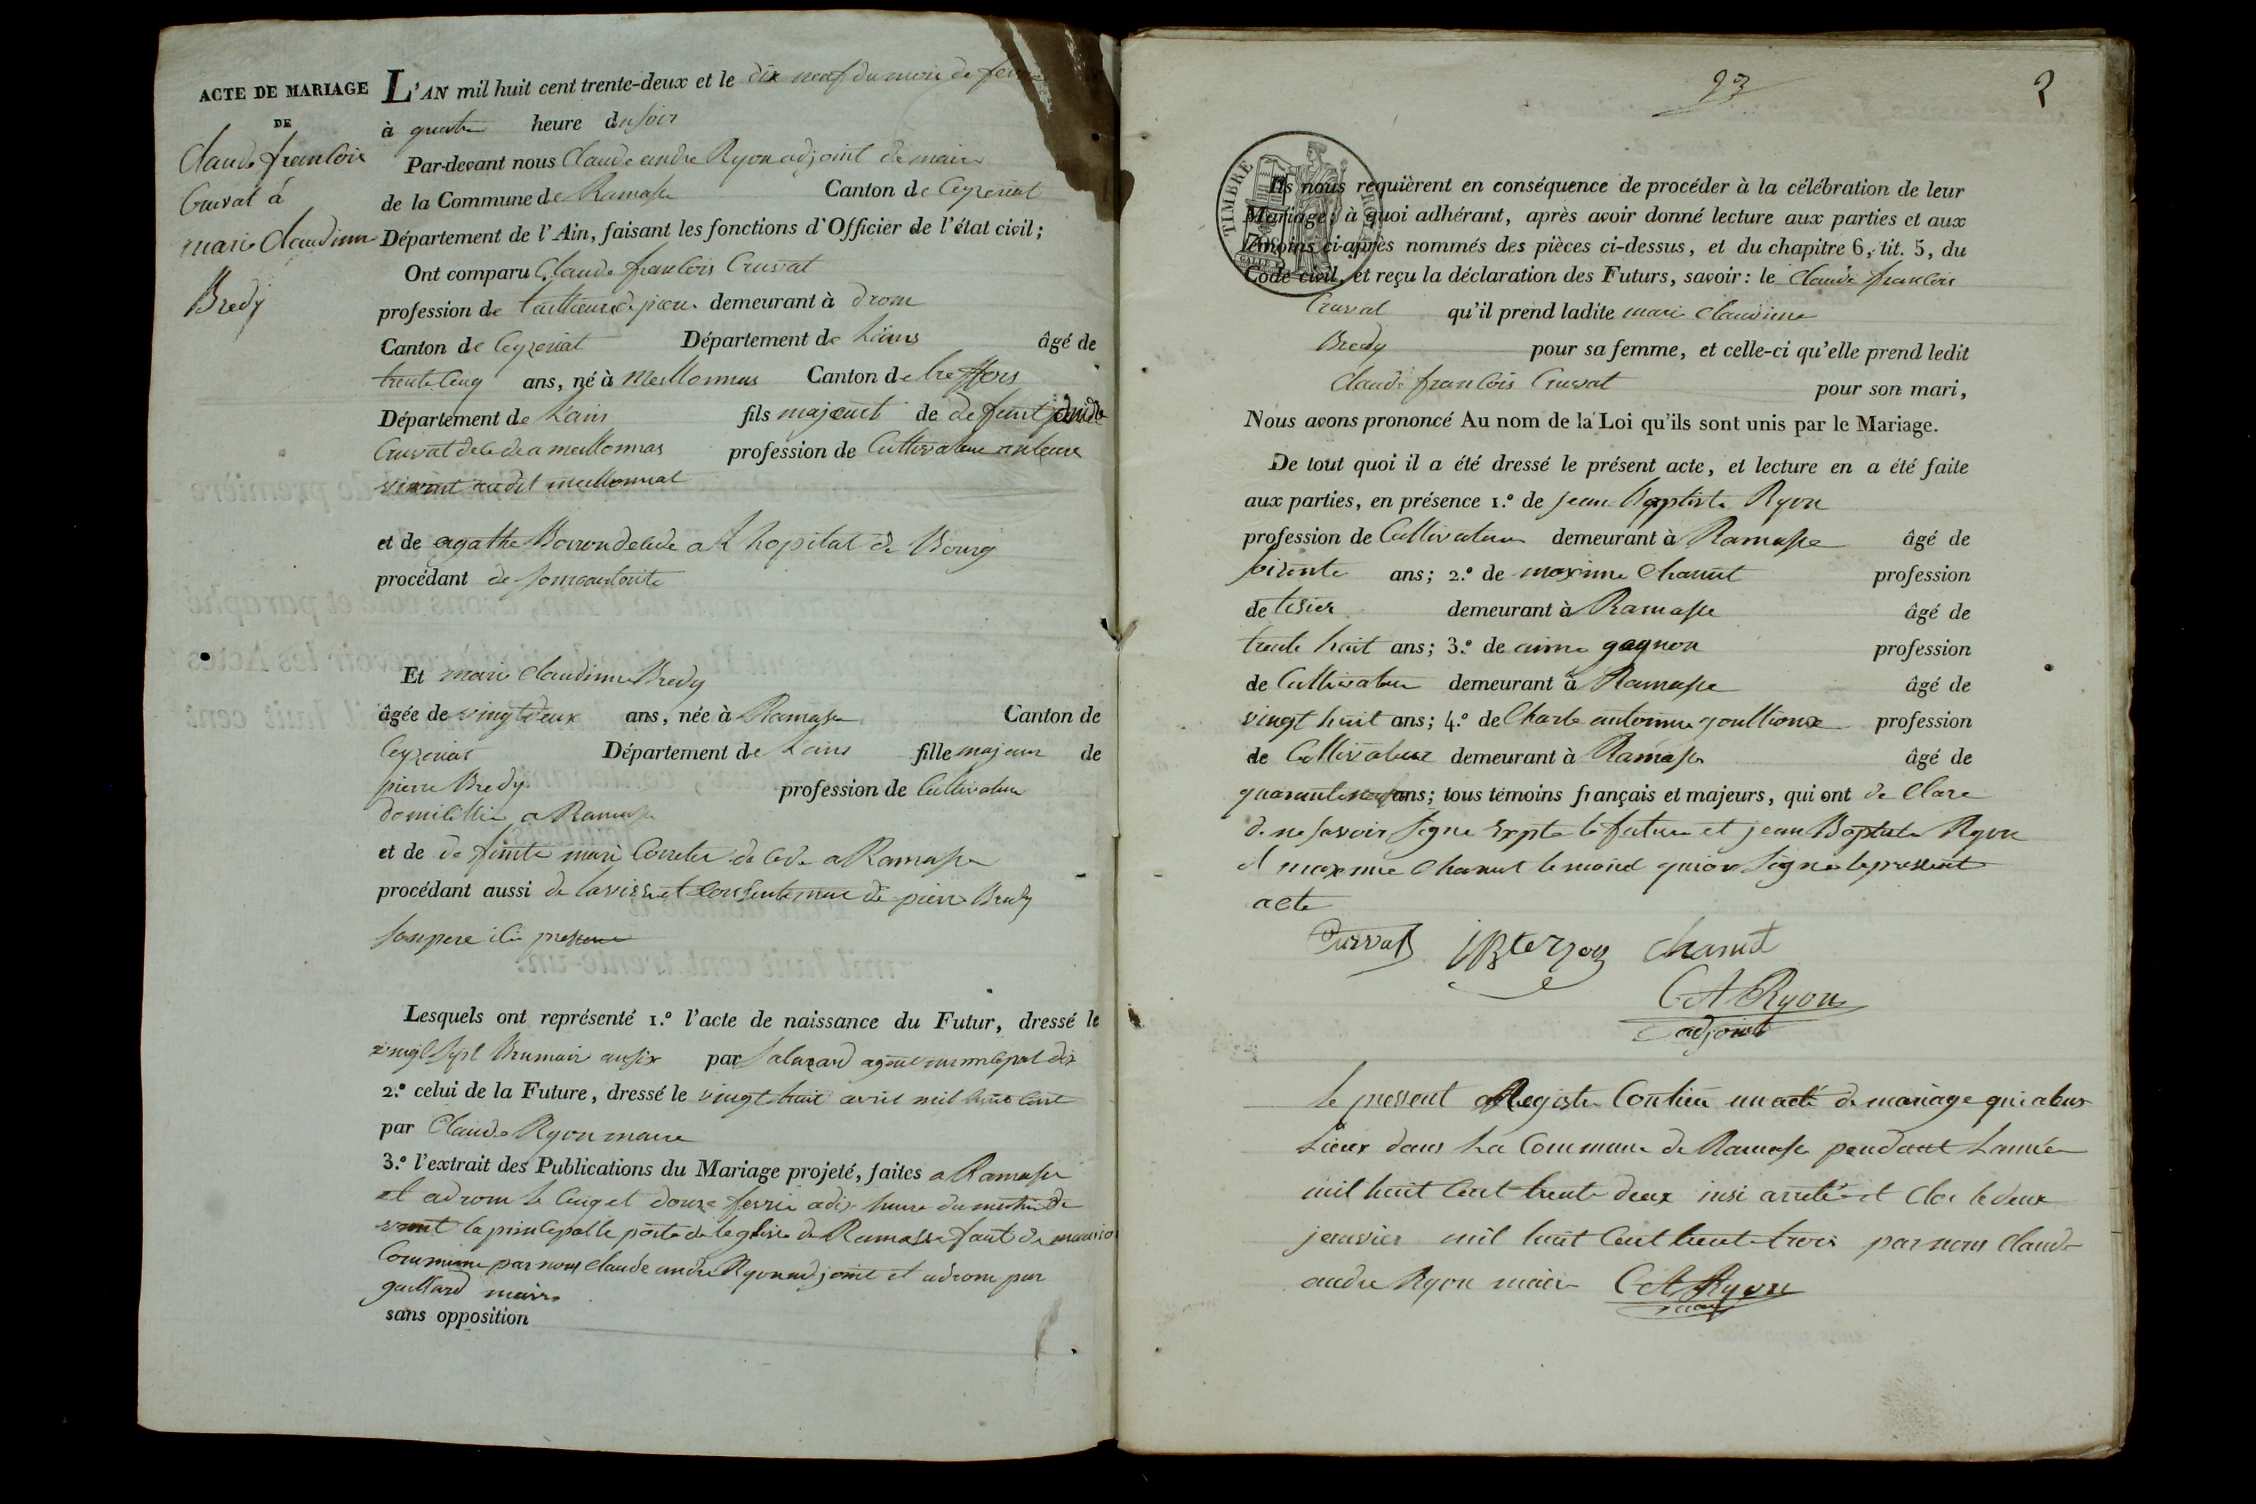 ACTE DE MARIAGE
DE
Claude francois
Cruvat á
marie Claudinne
Bredy
L'AN mil huit cent trente-deux et le dix neuf du mois de
à quatre heure du soir
Par-devant nous Claude andre Ryon adjoint de maire
de la Commune de Ramasse Canton de Ceyzeriat
Département de l'Ain, faisant les fonctions d'Officier de l'état civil;
Ont comparu Claude francois Cruvat
profession de demeurant à drom
Canton de Ceyzeriat Département de Lains âgé de
trente Cinq ans, né à Meillonnas Canton de treffors
Département de Lain fils majeurt de defunt
Cruvat decede a meillonnas profession de Cultivateur
vivant audit meillonnat
et de agathe decede a L hopital de Bourg
procédant de son autorite
Et marie Claudinne Bredy
âgée de vingt deux ans, née à Ramasse Canton de
Ceyzeriat Département de Lains fille majeur de
pierre Bredy profession de Cultivateur
domicillie a Ramasse
et de defunte marie decede a Ramasse
procédant aussi de lavis et Consentement de pierre Bredy
son pere ici present
Lesquels ont représenté 1.º l'acte de naissance du Futur, dressé le
vingt sept Brumair an six par agent municipal
2.º celui de la Future, dressé le vingt huit avril mil huit Cent
par Claude Ryon maire
3.º l'extrait des Publications du Mariage projeté, faites a Ramasse
et a drom le Cinq et douze fevrie a dix heure du de
vant la principalle porte de leglise de Ramasse faut de maison
Commune par nous Claude andre Ryon adjoint et a drom par
gaillard maire
sans opposition
23
2
TIMBRE ROYAL
Ils nous requièrent en conséquence de procéder à la célébration de leur
Mariage; à quoi adhérant, après avoir donné lecture aux parties et aux
témoins ci-après nommés des pièces ci-dessus, et du chapitre 6, tit. 5, du
Code civil, et reçu la déclaration des Futurs, savoir: le Claude francois
Cruvat qu'il prend ladite marie Claudinne
Bredy pour sa femme, et celle-ci qu'elle prend ledit
Claude francois Cruvat pour son mari,
Nous avons prononcé Au nom de la Loi qu'ils sont unis par le Mariage.
De tout quoi il a été dressé le présent acte, et lecture en a été faite
aux parties, en présence 1.º de jean Baptiste Ryon
profession de Cultivateur demeurant à Ramasse âgé de
ans; 2.º de maxime Chanut profession
de tisier demeurant à Ramasse âgé de
trente huit ans; 3.º de aime gagnon profession
de Cultivateur demeurant à Ramasse âgé de
vingt huit ans; 4.º de Charle antoinne profession
de Cultivateur demeurant à Ramasse âgé de
quarante ans; tous témoins français et majeurs, qui ont de Clare
de ne savoir signe Expte le future et jean Baptiste Ryon
et maxime Chanut qui on signé le present
acte
Curvat Chanut
C A Ryon
adjoint
le present Registre Contien un acte de mariage qui a
Lieux dans La Commune de Ramasse pendant Lannee
mil huit Cent trente deux insi arrete et Clos le deux
janvier mil huit Cent trente trois par nous Claude
andre Ryon maire C A Ryon